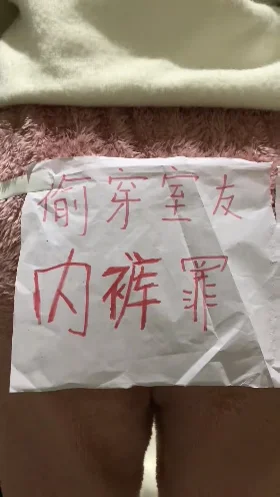 偷穿室友
内裤罪